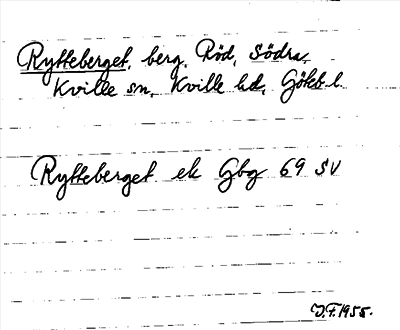 Rytteberget, berg, Röd, Södra,
Kville sn, Kville hd, Göteb. l.
Rytteberget ek Gbg 69 SV
J.F. 1955.